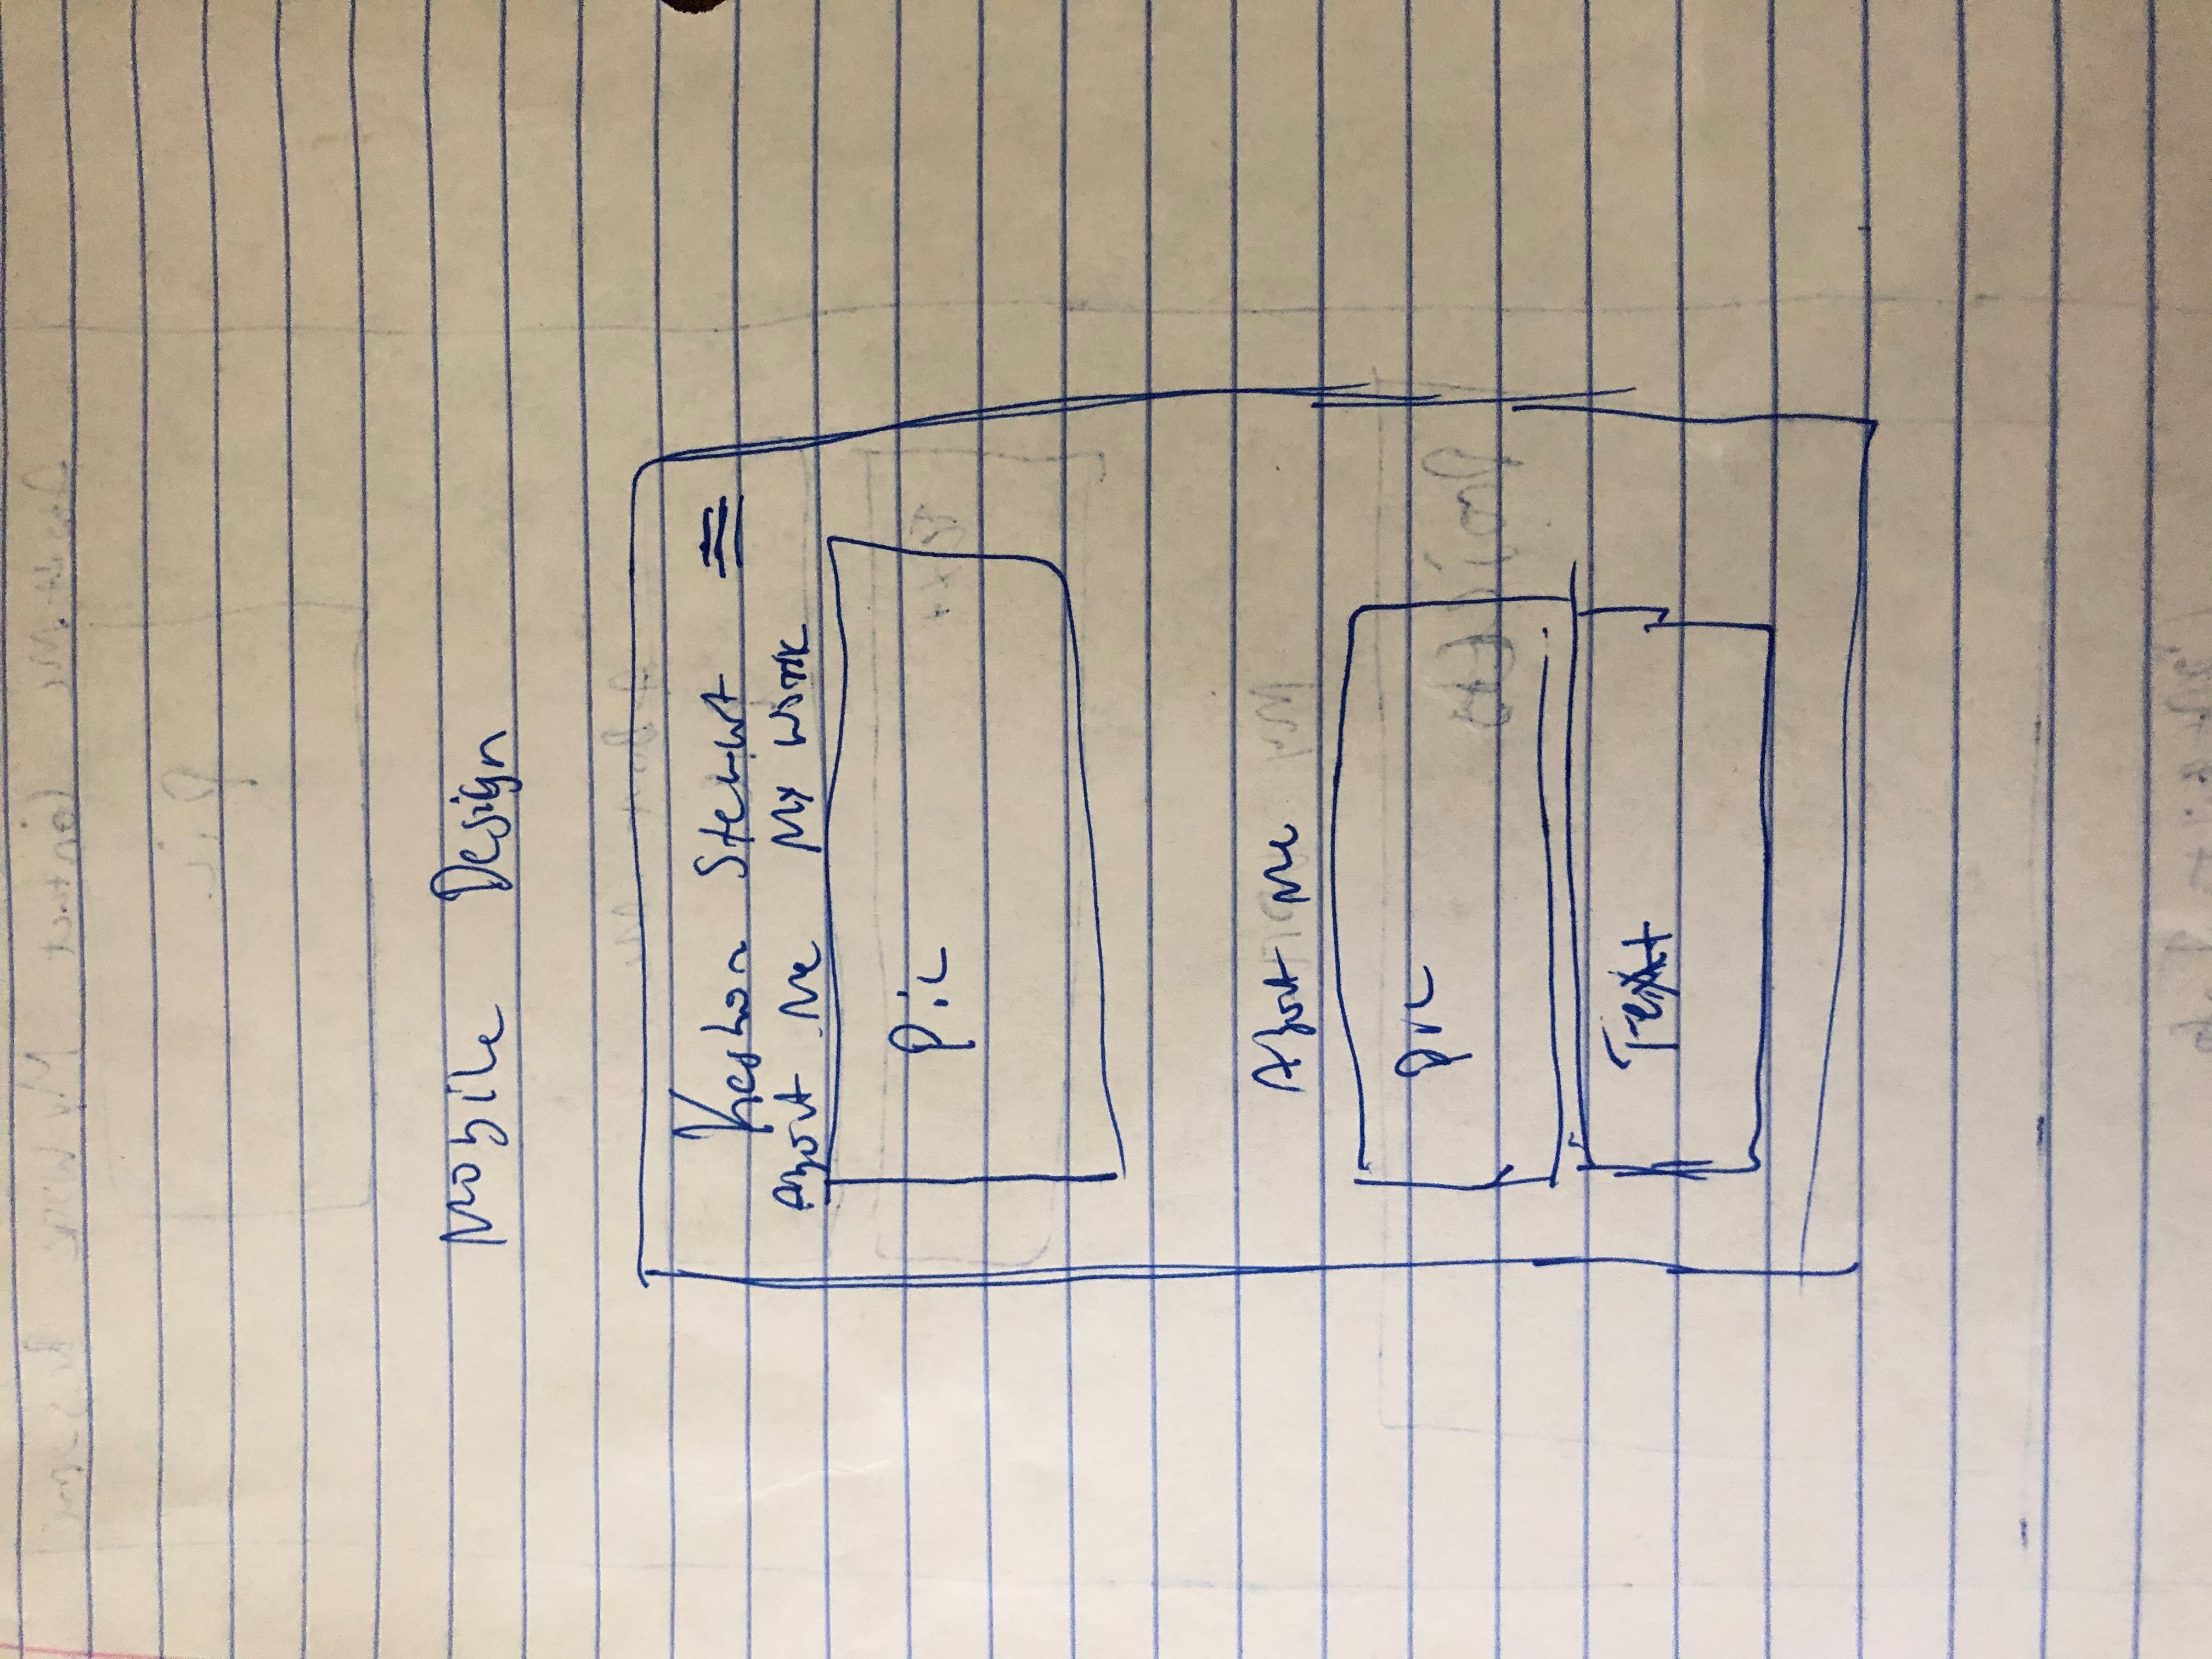 Mobile Design
Keshon Stewart
About Me My Work
Pic
About Me
Pic
Text